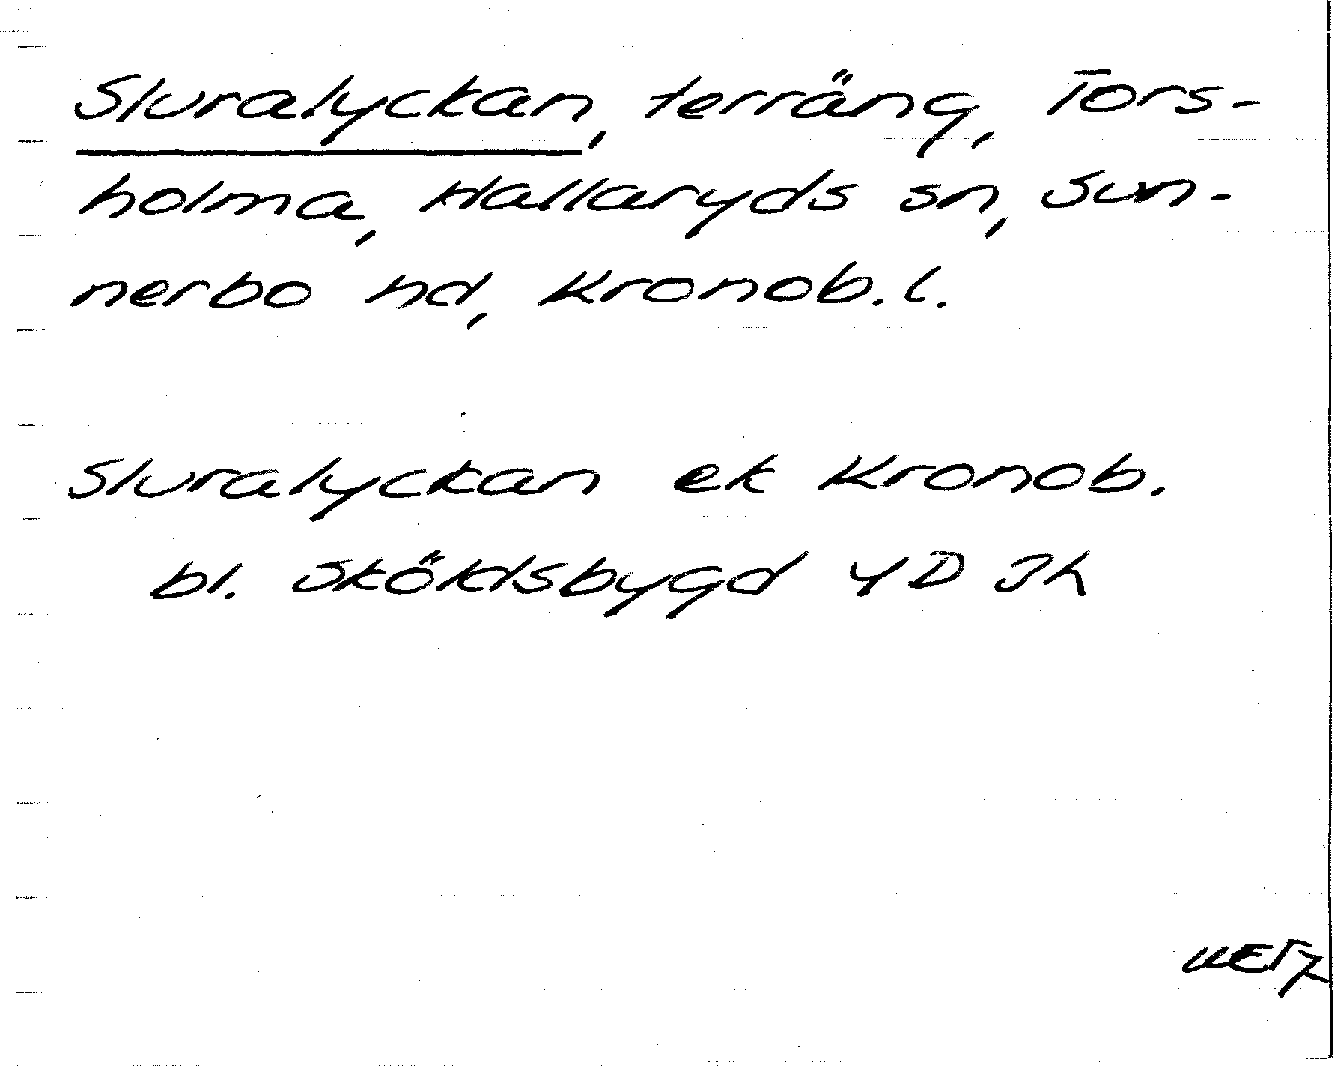 Sluralyckan, terräng, Tors-
holma, Hallaryds sn, Sun-
nerbo hd, Kronob. l.
Sluralyckan ek Kronob.
bl. Sköldsbygd 4D 3h